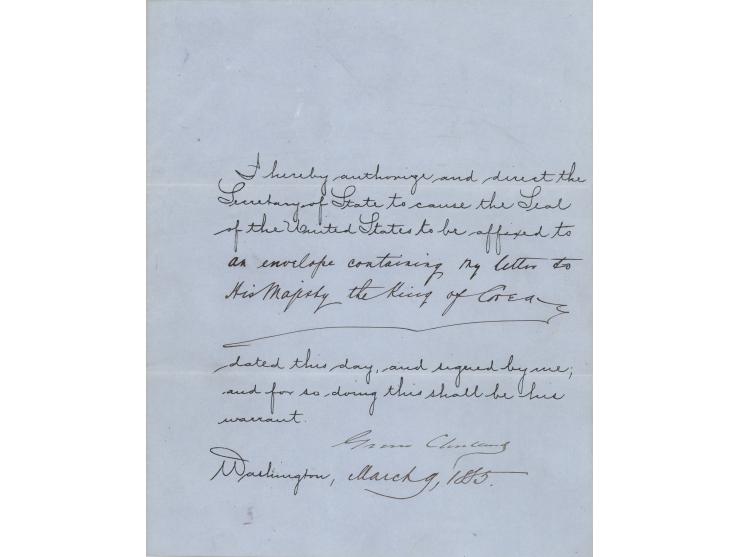 I hereby authorize and direct the
Secretary of State to cause the Seal
of the United States to be affixed to
an envelope containing my letter to
His Majesty the King of Corea
dated this day, and signed by me;
and for so doing this shall be his
warrant.
Grover Cleveland
Washington, March 9, 1885.